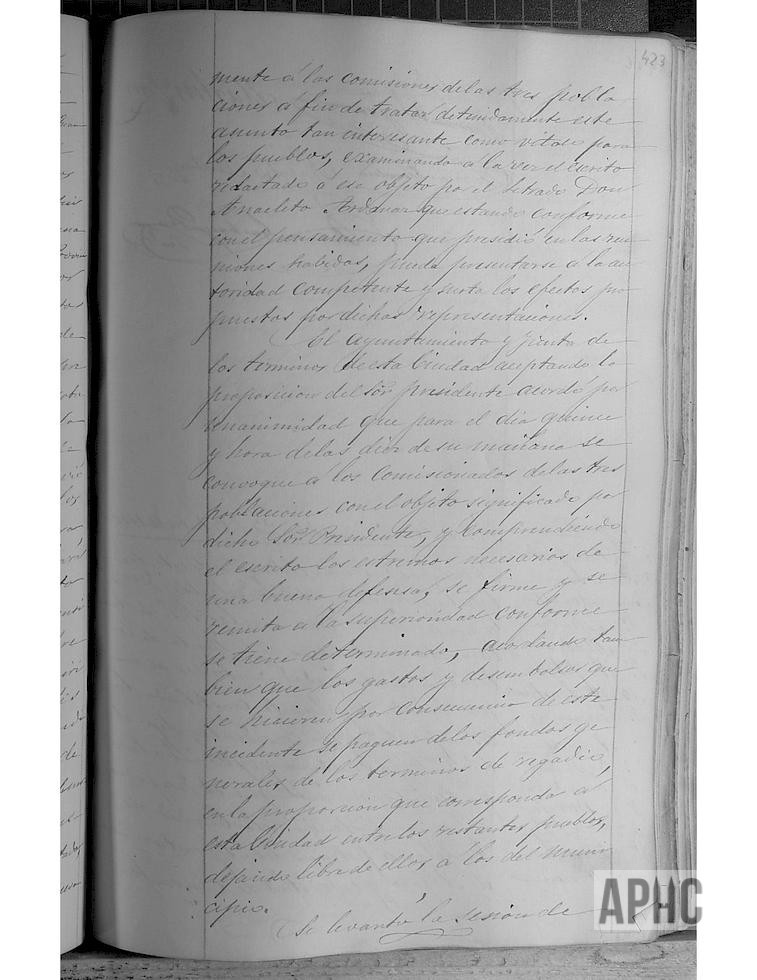 423
mente á las comisiones de las tres pobla
ciones á fin de tratar detenidamente este
asunto tan interesante como vital para
los pueblos, examinando á la vez el escrito
redactado á ese objeto por el Letrado Don
Anacleto que estando conforme
con el pensamiento que presidió en las reu
niones habidas, pueda presentarse á la au
toridad competente y surta los efectos pro
puestos por dichas representaciones.
El Ayuntamiento y junta de
los terminos de esta Ciudad aceptando la
proposicion del Sor. presidente acordó por
unanimidad que para el dia quince
y hora de las diez de su mañana se
convoque á los Comisionados de las tres
poblaciones con el objeto significado por
dicho Sor. Presidente, y comprendiendo
el escrito los estremos necesarios de
una buena defensa, se firme y se
remita á la superioridad conforme
se tiene determinado, acordando tam
bien que los gastos y desembolsos que
se hicieren por consecuencia de este
incidente se paguen de los fondos ge
nerales de los terminos de regadio,
en la proporcion que corresponda á
esta Ciudad entre los restantes pueblos,
dejando libre de ellos á los del muni
cipio.
Se levantó la sesion de
APHC